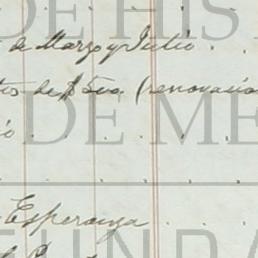 DE HIS
de Marzo y Julio.
tos de $500. (renovacio
DE ME
io.
Esperanza
FUNDA